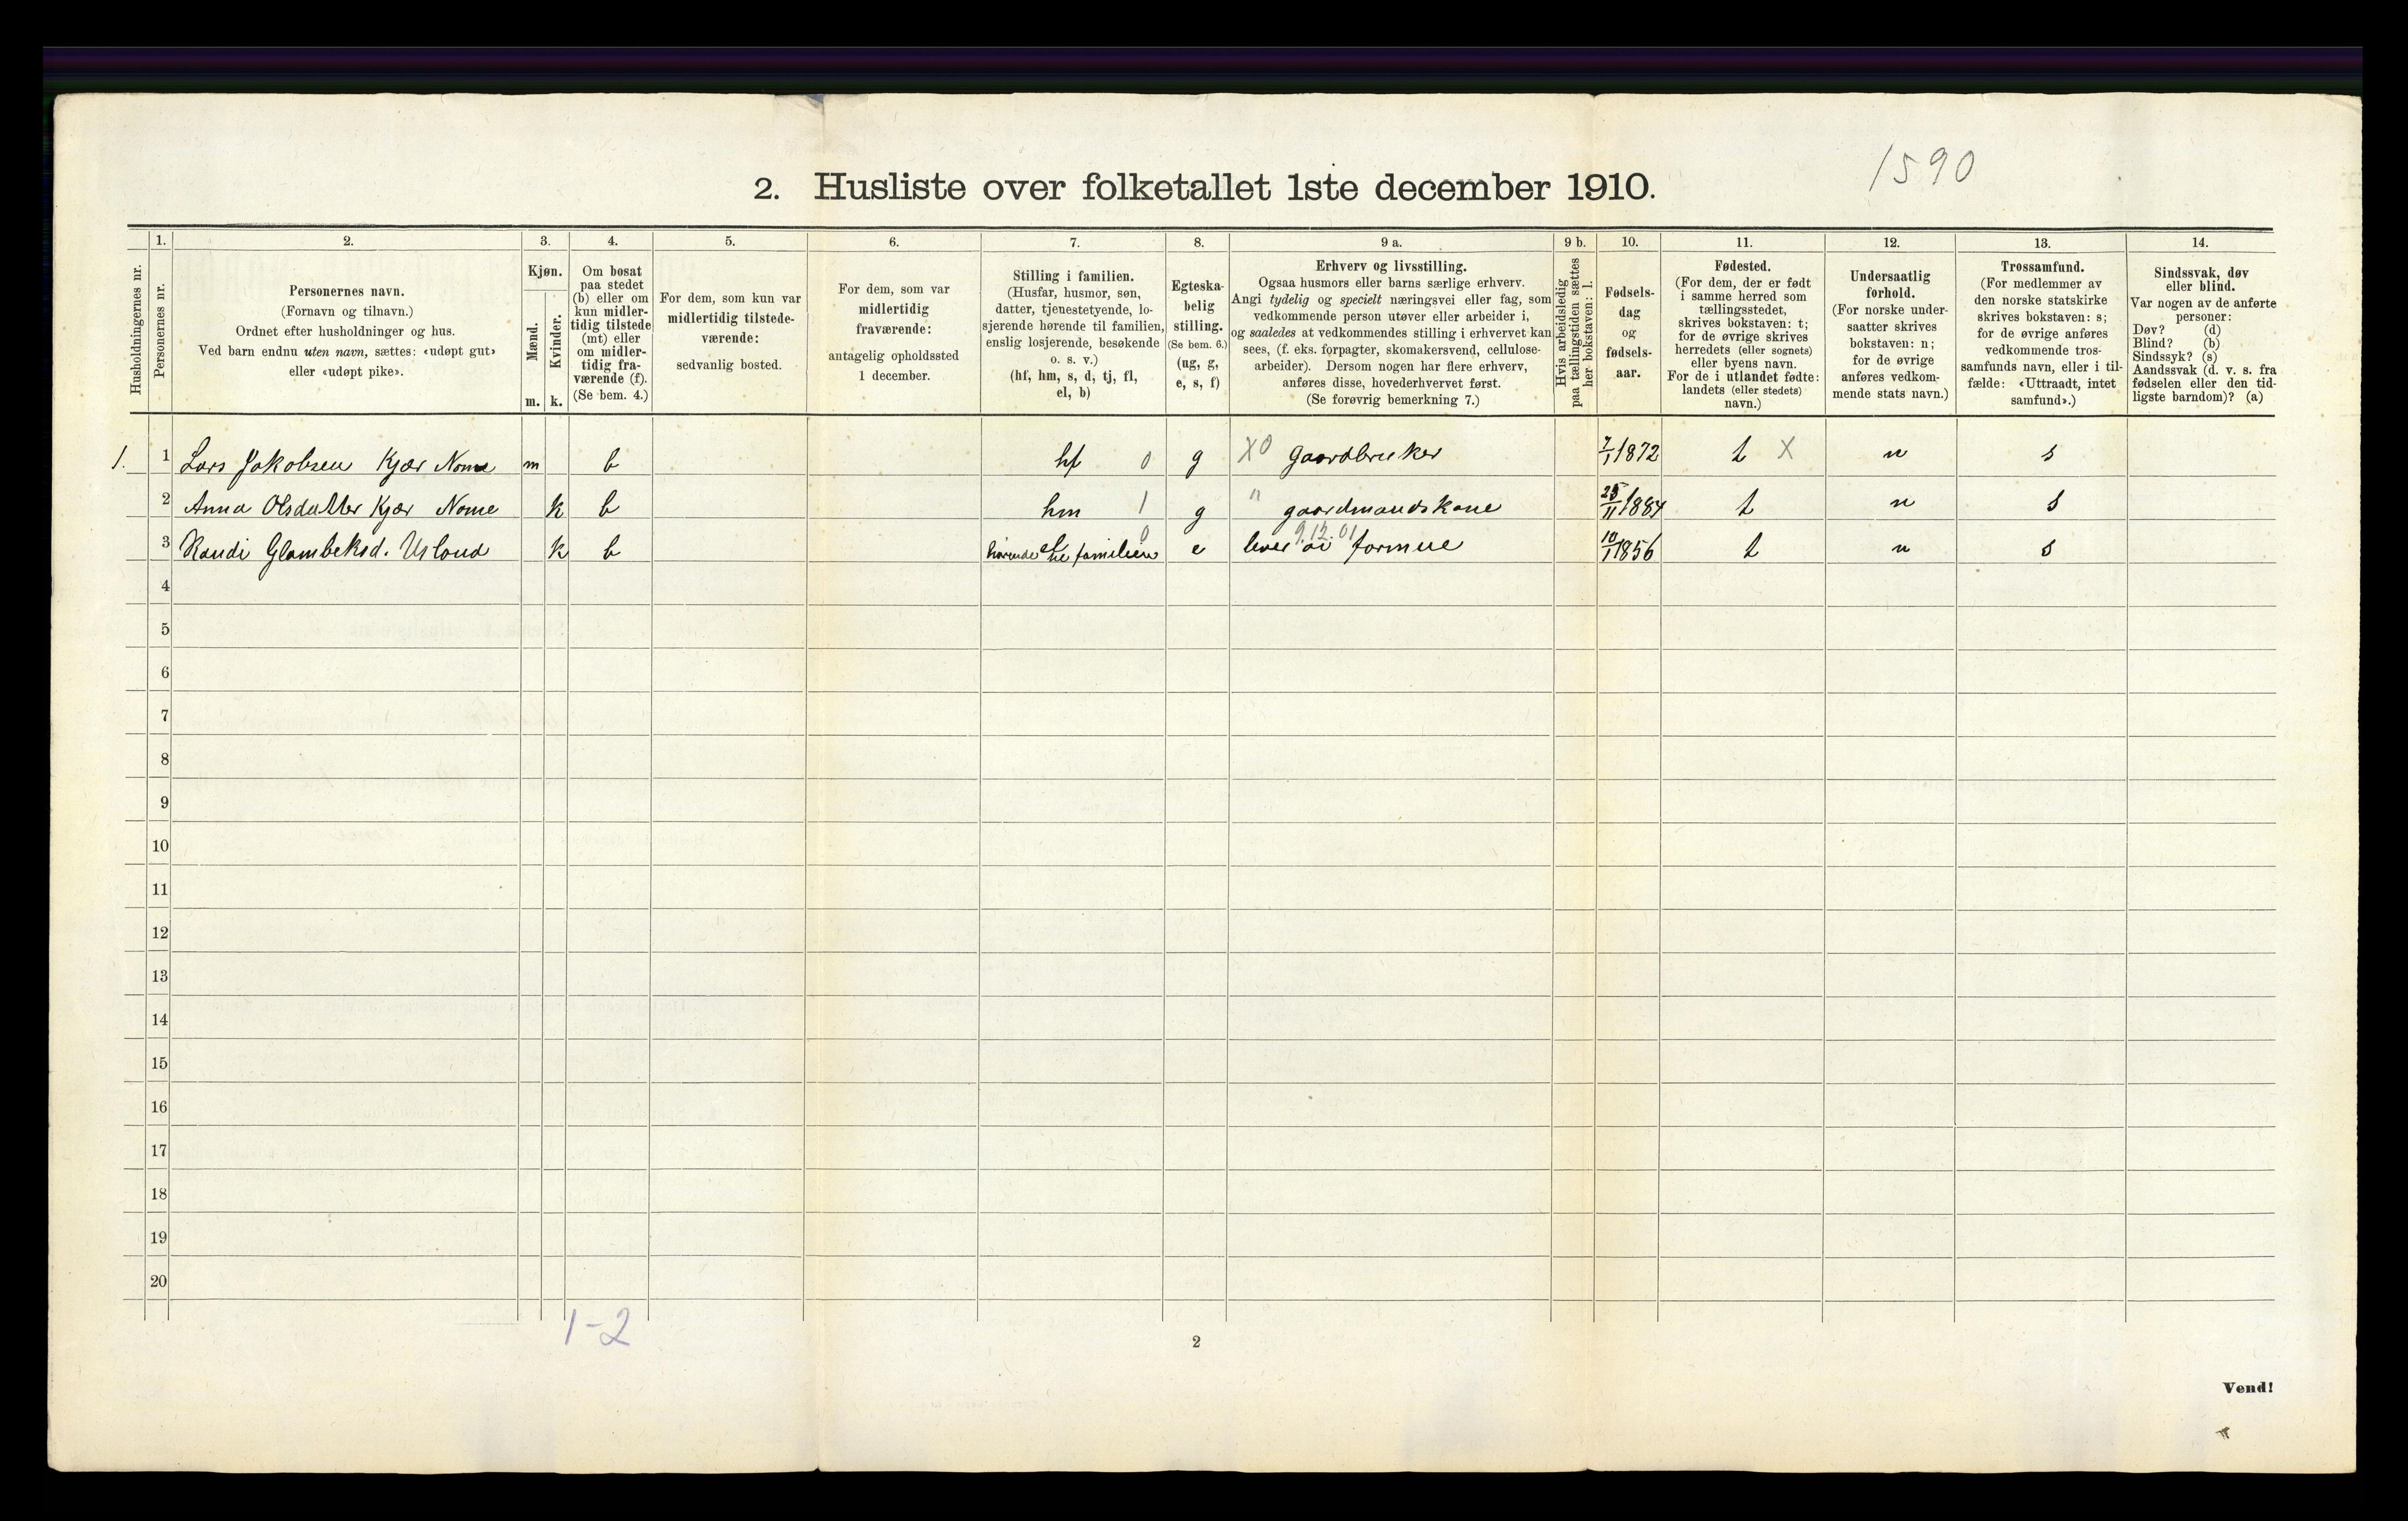 1590
2. Husliste over folketallet 1ste december 1910.
Husholdningernes nr.
1.
Personernes nr.
2.
Personernes navn.
(Fornavn og tilnavn.)
Ordnet efter husholdninger og hus.
Ved barn endnu uten navn, sættes: «udøpt gut»
eller «udøpt pike».
3.
Kjøn.
Mænd.
Kvinder.
m. k.
4.
Om bosat
paa stedet
(b) eller om
kun midler-
tidig tilstede
(mt) eller
om midler-
tidig fra-
værende (f).
(Se bem. 4.)
5.
For dem, som kun var
midlertidig tilstede-
værende:
sedvanlig bosted.
6.
For dem, som var
midlertidig
fraværende:
antagelig opholdssted
1 december.
7.
Stilling i familien.
(Husfar, husmor, søn,
datter, tjenestetyende, lo-
sjerende hørende til familien,
enslig losjerende, besøkende
o. s. v.)
(hf, hm, s, d, tj, fl,
el, b)
8.
Egteska-
belig
stilling.
(Se bem. 6.)
(ug, g,
e, s, f)
9 a.
Erhverv og livsstilling.
Ogsaa husmors eller barns særlige erhverv.
Angi tydelig og specielt næringsvei eller fag, som
vedkommende person utøver eller arbeider i,
og saaledes at vedkommendes stilling i erhvervet kan
sees, (f. eks. forpagter, skomakersvend, cellulose-
arbeider). Dersom nogen har flere erhverv,
anføres disse, hovederhvervet først.
(Se forøvrig bemerkning 7.)
9 b.
Hvis arbeidsledig
paa tællingstiden sættes
her bokstaven: l.
10.
Fødsels-
dag
og
fødsels-
aar.
11.
Fødested.
(For dem, der er født
i samme herred som
tællingsstedet,
skrives bokstaven: t;
for de øvrige skrives
herredets (eller sognets)
eller byens navn.
For de i utlandet fødte:
landets (eller stedets)
navn.)
12.
Undersaatlig
forhold.
(For norske under-
saatter skrives
bokstaven: n;
for de øvrige
anføres vedkom-
mende stats navn.)
13.
Trossamfund.
(For medlemmer av
den norske statskirke
skrives bokstaven: s;
for de øvrige anføres
vedkommende tros-
samfunds navn, eller i til-
fælde: «Uttraadt, intet
samfund».)
14.
Sindssvak, døv
eller blind.
Var nogen av de anførte
personer:
Døv? (d)
Blind? (b)
Sindssyk? (s)
Aandssvak (d. v. s. fra
fødselen eller den tid-
ligste barndom)? (a)
1. 1 Lars Jakobsen Kjær Nome m b hf 0 g X0 Gaardbruker 7/1 1872 t X n s
2 Anna Olsdatter Kjær Nome k b hm 1 g " gaardmandskone 25/11 1884 t n s
0 9.12.01
3 Randi Glambeksd. Usland k b hørende til familien e lever av formue 10/1 1856 t n s
4
5
6
7
8
9
10
11
12
13
14
15
16
17
18
19
20
1-2
2
Vend!